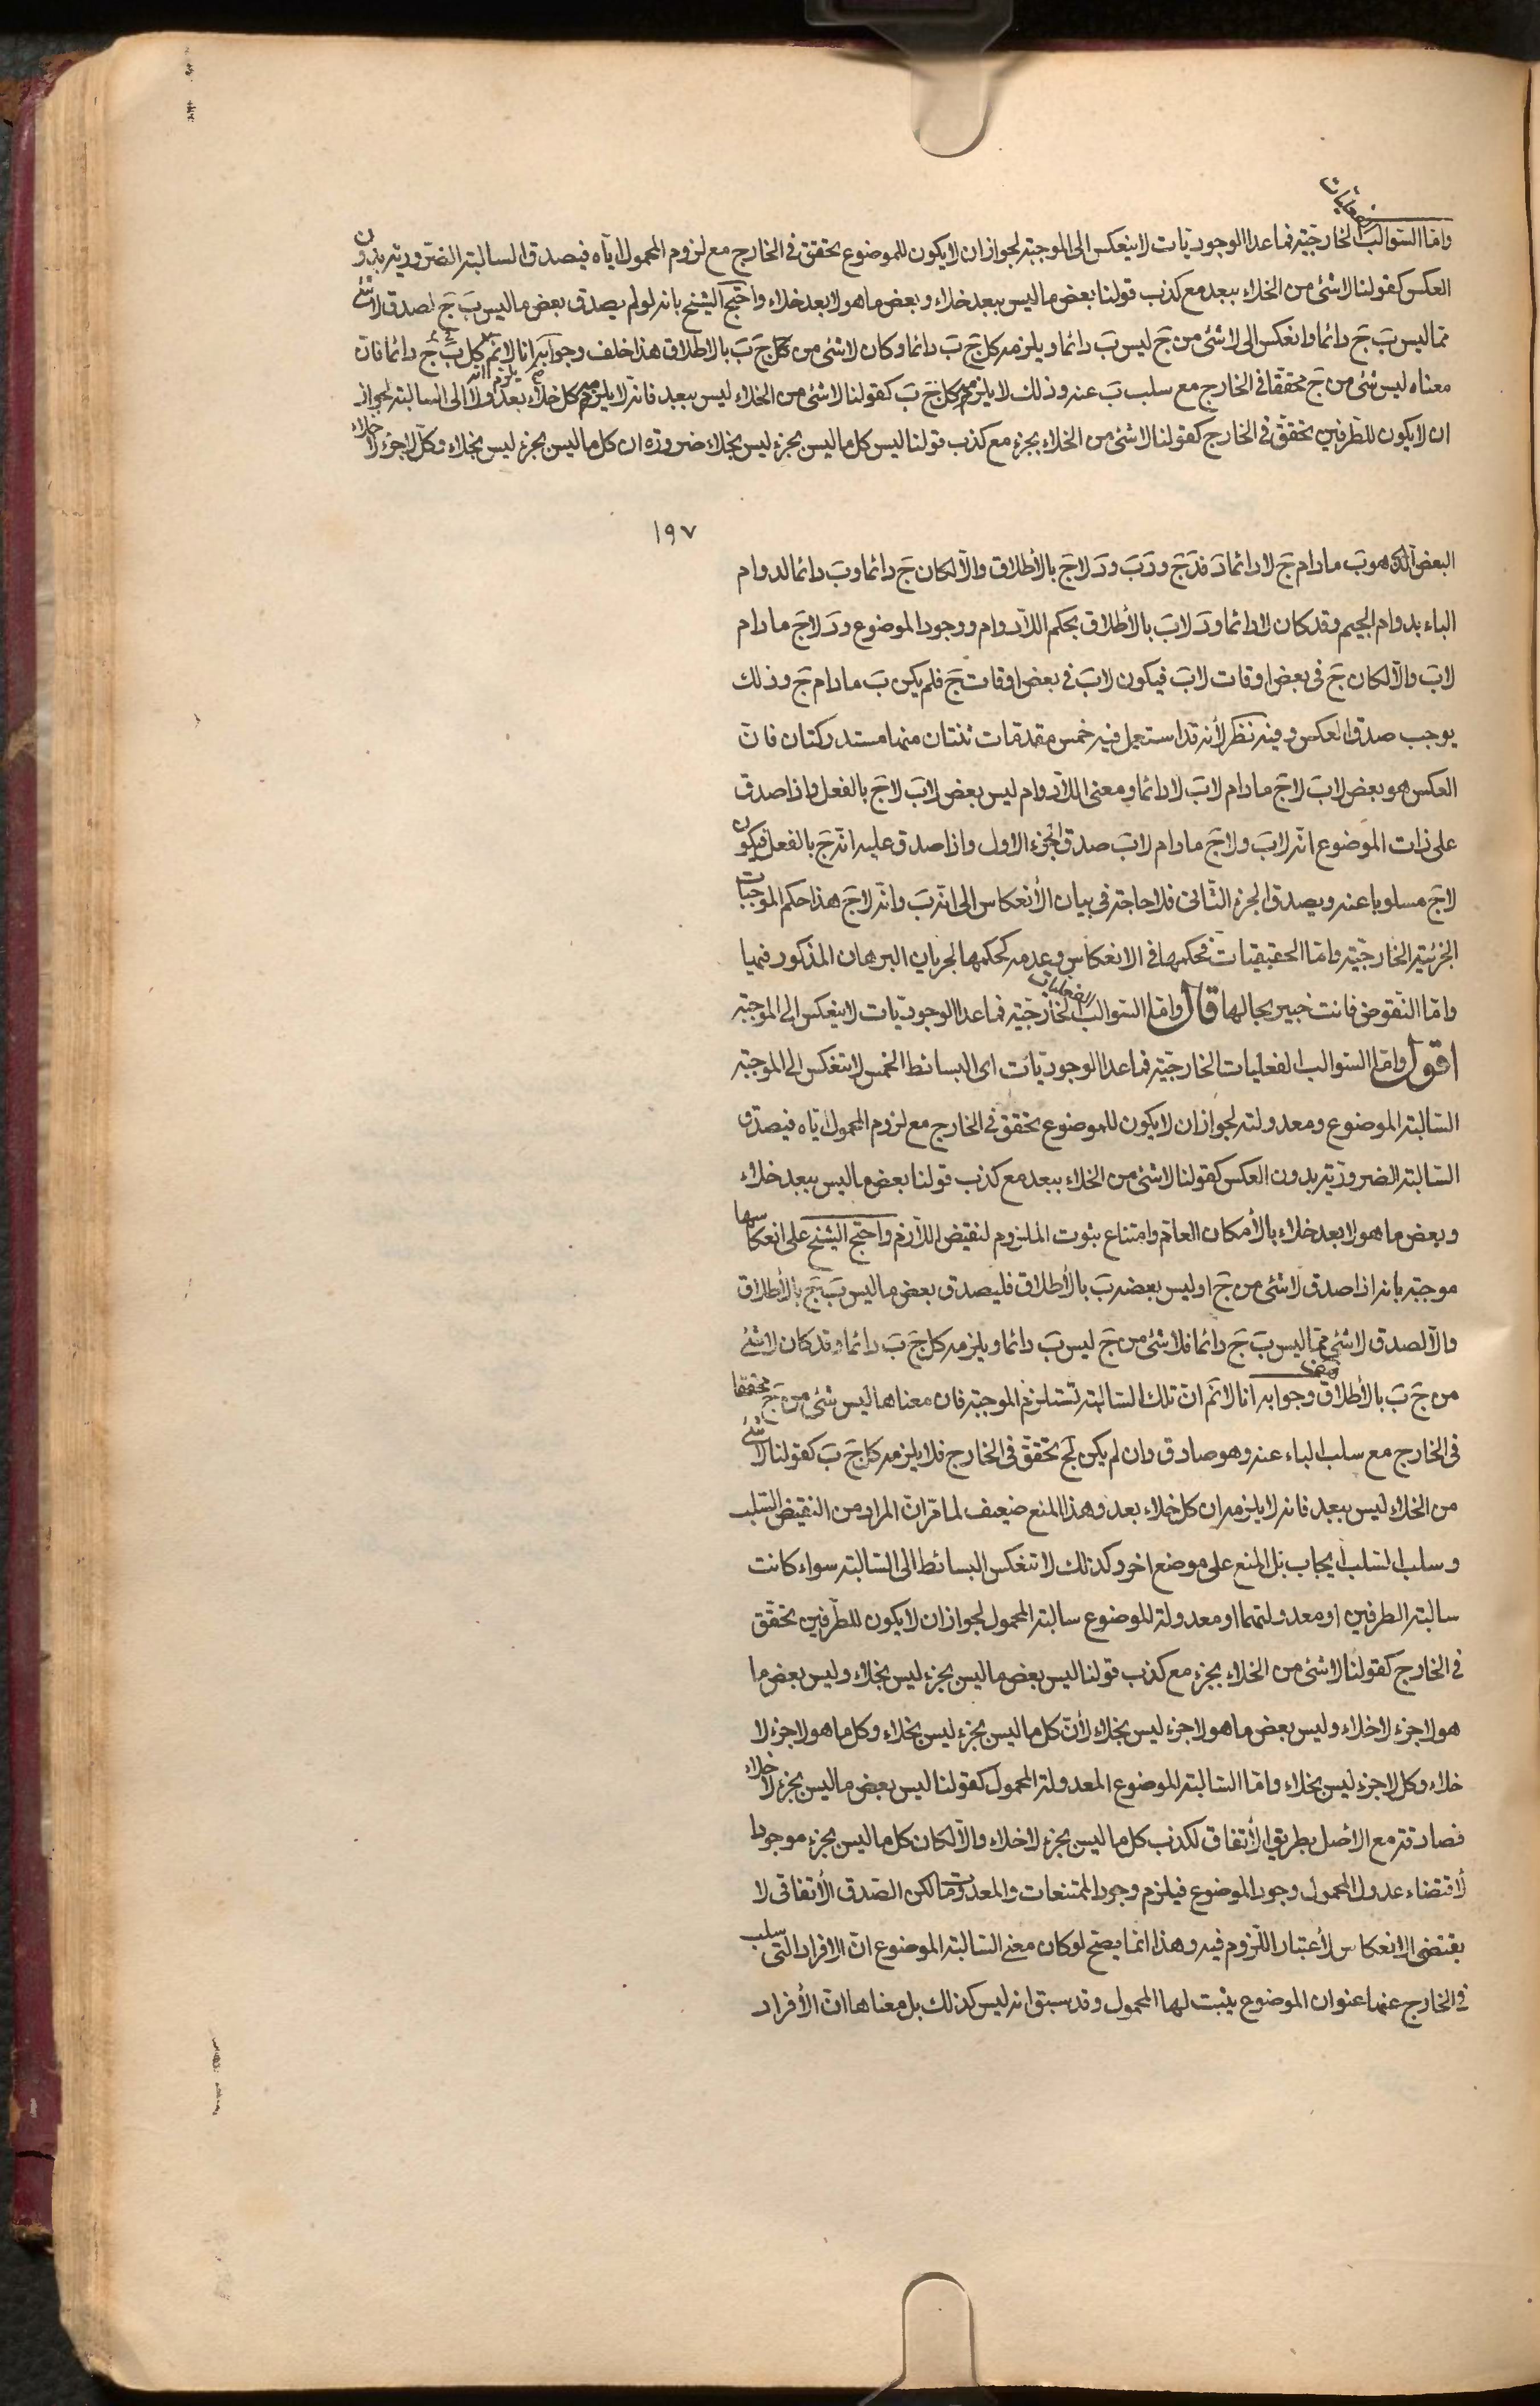 الفعليات
وامّا السّوالب الخارجيّة فماعدا الوجوديّات لا ينعكس الى الموجبة لجواز ان لا يكون للموضوع تحقق فى الخارج مع لزوم المحمول ايّاه فيصدق السالبة الضّروريّة بدون
العكس كقولنا لا شئ من الخلاء ببعد مع كذب قولنا بعض ما ليس ببعد خلاء وبعض ما هو لا بعد خلاء واحتج الشيخ بانه لو لم يصدق بعض ما ليس بَ جَ لصدق لا شئ
ممّا ليس بَ جَ دائما وانعكس الى لا شئ من جَ ليس بَ دائما ويلزمه كل جَ بَ دائما وكان لا شئ من جَ بَ بالاطلاق هذا خلف وجوابه انا لا نم انّه يلزم كل بَ جَ دائما فانّ
معناه ليس شئ من جَ محققا فى الخارج مع سلب بَ عنه وذلك لا يلزمه كل جَ بَ كقولنا لا شئ من الخلاء ليس ببعد فانّه لا يلزمه كل خلاء بعد ولا الى السالبة لجواز
ان لا يكون للطّرفين تحقّق فى الخارج كقولنا لا شئ من الخلاء بجزء مع كذب قولنا ليس كل ما ليس بجزء ليس بخلاء ضرورة ان كل ما ليس بجزء ليس بخلاء وكلّ لا جزء لا خلاء
١٩٧
البعض الّذى هو بَ مادام جَ لا دائما دَ فدَ جَ ودَ بَ ودَ لا جَ بالأطلاق والّا لكان جَ دائما وبَ دائما لدوام
الباء بدوام الجيم وقد كان لا دائما ودَ لا بَ بالأطلاق بحكم اللّادوام ووجود الموضوع ودَ لا جَ مادام
لا بَ والّا لكان جَ فى بعض اوقات لا بَ فيكون لا بَ فى بعض اوقات جَ فلم يكن بَ مادام جَ وذلك
يوجب صدق العكس وفيه نظر لأنه قد استعمل فيه خمس مقدمات ثنتان منها مستدركتان فانّ
العكس هو بعض لا بَ لا جَ مادام لا بَ لا دائما ومعنى اللّادوام ليس بعض لا بَ لا جَ بالفعل واذا صدق
على ذات الموضوع انّه لا بَ ولا جَ مادام لا بَ صدق الجزء الاول واذا صدق عليه انّه جَ بالفعل فيكون
لا جَ مسلوبا عنه ويصدق الجزء الثّانى فلا حاجة فى بيان الأنعكاس الى انّه بَ وانّه لا جَ هذا حكم الموجبات
الجزئيّة الخارجيّة وامّا الحقيقيات فحكمها فى الانعكاس وعدمه كحكمها لجريان البرهان المذكور فيها
وامّا النّقوض فانت خبير بحالها قال وامّا السّوالب الفعليات الخارجيّة فماعدا الوجوديّات لا ينعكس الى الموجبة
اقول وامّا السّوالب الفعليات الخارجيّة فماعدا الوجوديّات اى البسائط الخمس لا تنعكس الى الموجبة
السّالبة الموضوع ومعدولته لجواز ان لا يكون للموضوع تحقق فى الخارج مع لزوم المحمول ايّاه فيصدق
السّالبة الضروريّة بدون العكس كقولنا لا شئ من الخلاء ببعد مع كذب قولنا بعض ما ليس ببعد خلاء
وبعض ما هو لا بعد خلاء بالأمكان العام وامتناع ثبوت الملزوم لنقيض اللّازم واحتج الشيخ على انعكاسها
موجبة بانه اذا صدق لا شئ من جَ او ليس بعضه بَ بالأطلاق فليصدق بعض ما ليس بَ جَ بالأطلاق
والّا لصدق لا شئ ممّا ليس بَ جَ دائما فلا شئ من جَ ليس بَ دائما ويلزمه كل جَ بَ دائما وقد كان لا شئ
من جَ بَ بالأطلاق هف وجوابه انا لا نم انّ تلك السّالبة تستلزم الموجبة فان معناها ليس شئ من جَ محققا
فى الخارج مع سلب الباء عنه وهو صادق وان لم يكن لجَ تحقّق فى الخارج فلا يلزمه كل جَ بَ كقولنا لا شئ
من الخلاء ليس ببعد فانه لا يلزمه ان كل خلاء بعد وهذا المنع ضعيف لما مرّ انّ المراد من النقيض السّلب
وسلب السّلب ايجاب بل المنع على موضع اخر وكذلك لا تنعكس البسائط الى السّالبة سواء كانت
سالبة الطرفين او معدولتهما او معدولة الموضوع سالبة المحمول لجواز ان لا يكون للطّرفين تحقّق
فى الخارج كقولنا لا شئ من الخلاء بجزء مع كذب قولنا ليس بعض ما ليس بجزء ليس بخلاء وليس بعض ما
هو لا جزء لا خلاء وليس بعض ما هو لا جزء ليس بخلاء لأنّ كل ما ليس بجزء ليس بخلاء وكل ما هو لا جزء لا
خلاء وكل لا جزء ليس بخلاء وامّا السّالبة الموضوع المعدولة المحمول كقولنا ليس بعض ما ليس بجزء لا خلاء
فصادقة مع الأصل بطريق الأتفاق لكذب كل ما ليس بجزء لا خلاء والّا لكان كل ما ليس بجزء موجودا
لأقتضاء عدول المحمول وجود الموضوع فيلزم وجود الممتنعات والمعدومات لكن الصّدق الأتفاقى لا
يقتضى الانعكاس لأعتبار اللّزوم فيه وهذا انّما يصحّ لو كان معنى السّالبة الموضوع انّ الافراد الّتى سلب
فى الخارج عنها عنوان الموضوع يثبت لها المحمول وقد سبق انه ليس كذلك بل معناها انّ الأفراد